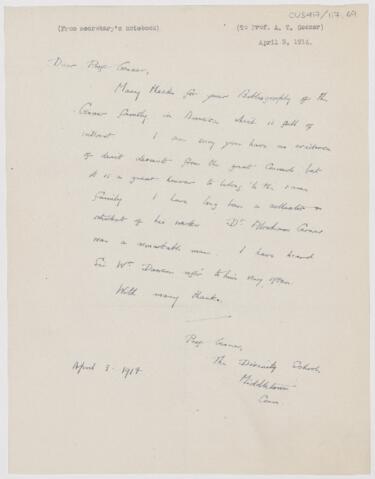 CUS417/117.69
(From secretary's notebook)
(to Prof. A. T. Gesner)
April 3, 1914.
Dear Prof Gesner,
Many thanks for your Bibliography of the
Gesner family in America which is full of
interest I am sorry you have no evidence
of direct descent from the great Conrad but
it is a great honour to belong to the same
family I have long been a collector &
student of his works Dr Abraham Gesner
was a remarkable man. I have heard
Sir Wm Dawson refer to him very often.
With many thanks.
Prof Gesner,
The Divinity School,
Middletown
Conn
April 3 1914